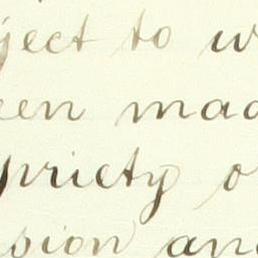 ject to w
een mad
priety o
sion and